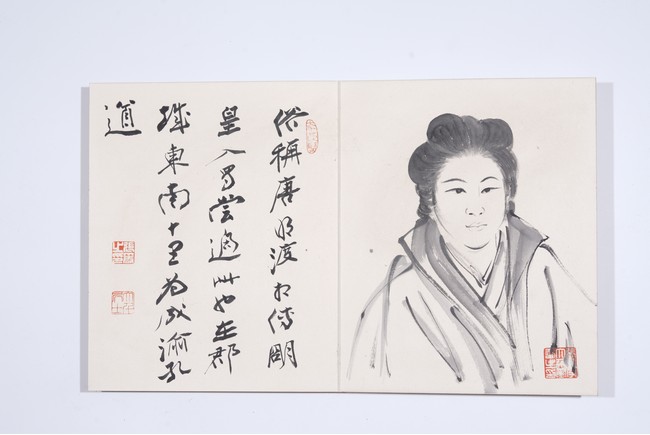 俗稱唐明渡相傳明
皇入蜀嘗過此也在郡
城東南十里為成渝孔
道